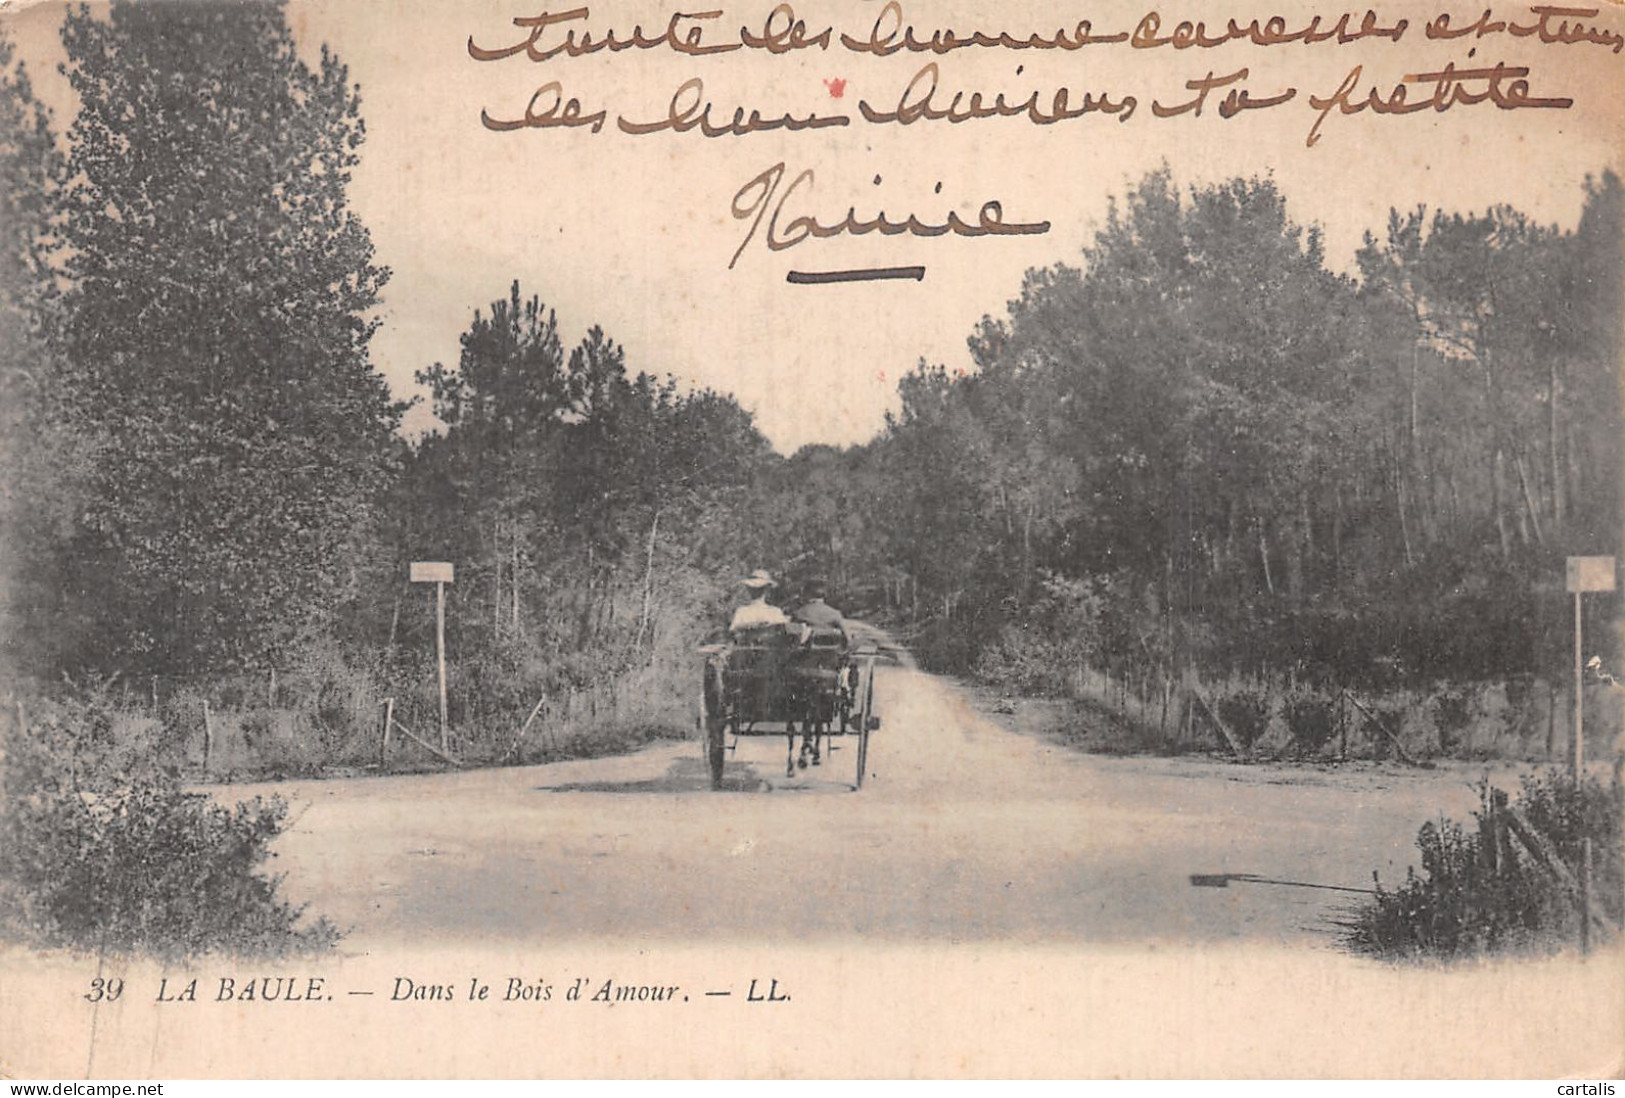 toute les bonne caresses et tous
les bon baisers ta petite
39 LA BAULE. — Dans le Bois d'Amour. — LL.
www.delcampe.net
cartalis